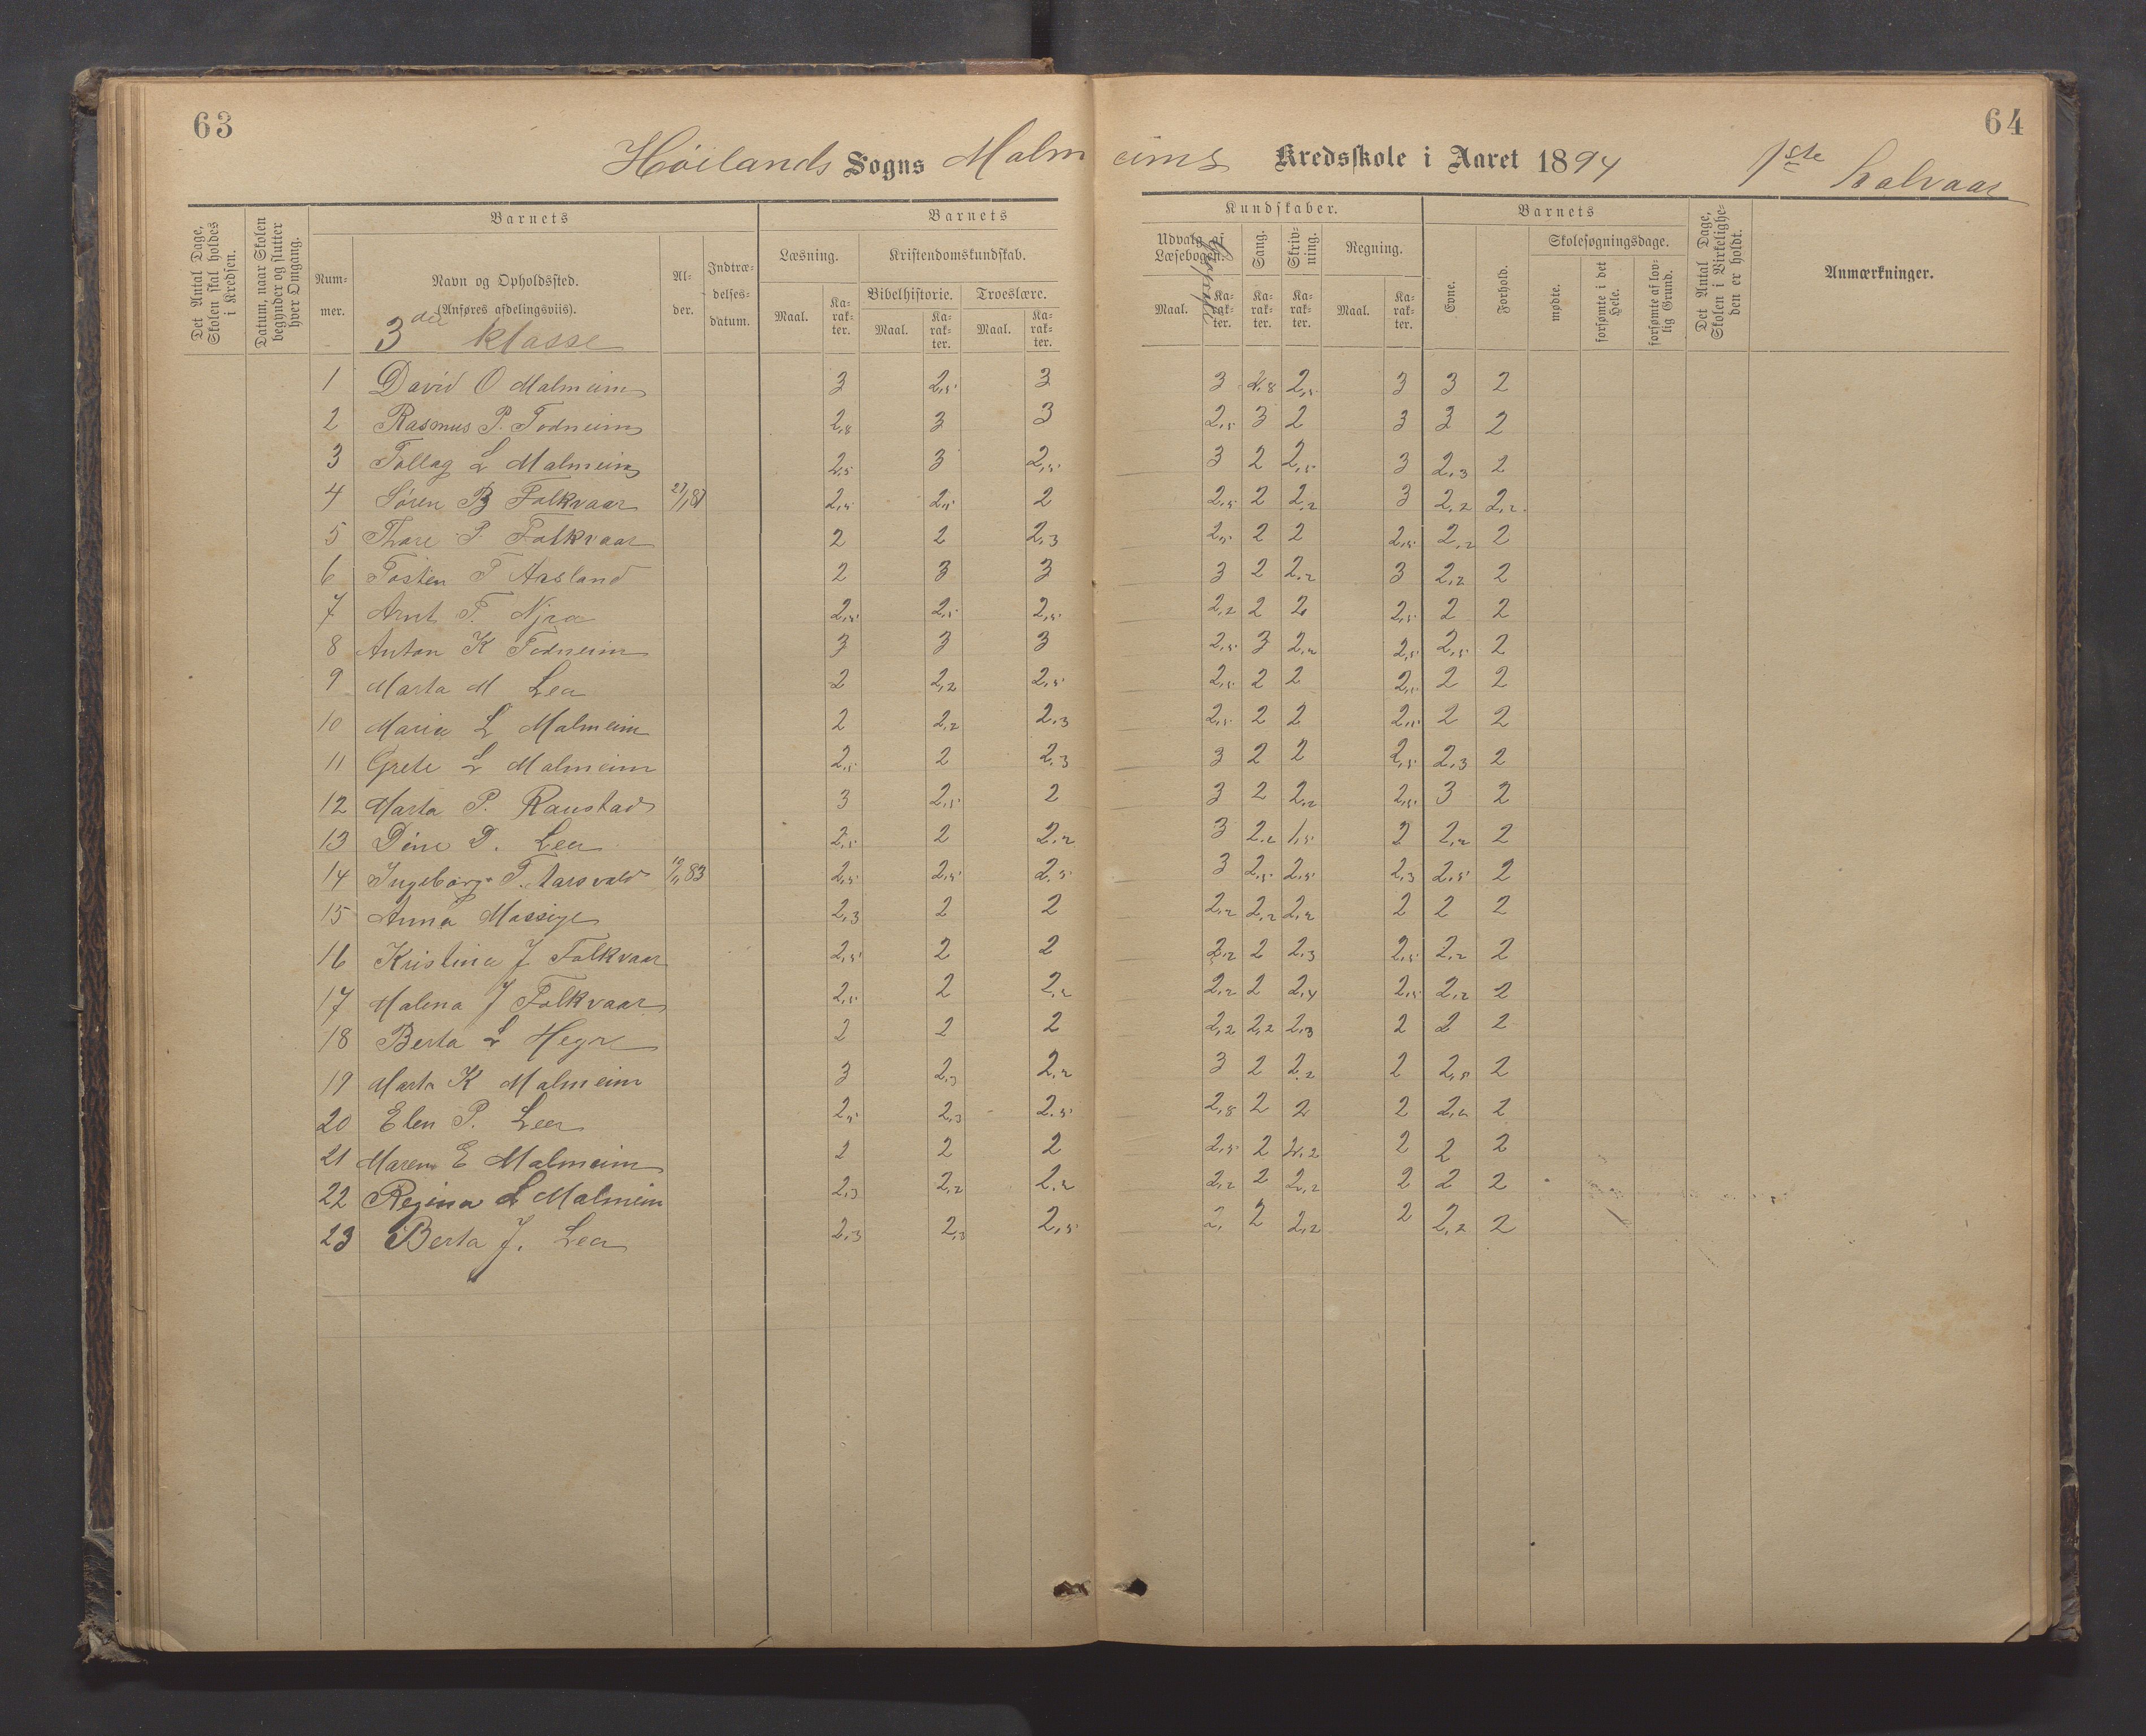 63
64
Höilands Sogns Malm eims Kredsskole i Aaret 1894 1ste Halvaar
Det Antal Dage, Skolen skal holdes i Kredsen.
Datum, naar Skolen begynder og slutter hver Omgang.
Barnets
Barnets
Kundskaber.
Barnets
Det Antal Dage, Skolen i Virkeligheden er holdt.
Anmærkninger.
Nummer.
Navn og Opholdssted.
(Anføres afdelingsviis).
3die klasse
Alder.
Indtrædelsesdatum.
Læsning.
Kristendomskundskab.
Bibelhistorie.
Troeslære.
Udvalg af Læsebogen.
Sang.
Skrivning.
Regning.
Evne.
Forhold.
Skolesøgningsdage.
mødte.
forsømte i det Hele.
forsømte af lovlig Grund.
Maal. Karakter. Maal. Karakter. Maal. Karakter. Maal. Karakter. Karakter. Karakter. Maal. Karakter.
1 David O Malmeim 3 2,5 3 3 2,8 2,5 3 3 2
2 Rasmus P. Todneim 2,8 3 3 2,5 3 2 3 3 2
3 Tollag L Malmeim 2,5 3 2,5 3 2 2,5 3 2,3 2
4 Søren B Folkvaar 2,5 2,5 2 2,5 2 2,2 3 2,2 2,2
5 Thore P. Folkvaar 2 2 2,3 2,5 2 2 2,5 2,2 2
6 Tosten T Aasland 2 3 3 3 2 2,2 3 2,2 2
7 Arnt T. Njaa 2,5 2,5 2,5 2,2 2 2 2,5 2 2
8 Anton K Todneim 3 3 3 2,5 3 2,2 2,5 2,5 2
9 Marta M Lea 2 2,2 2,5 2,5 2 2 2,5 2 2
10 Maria L Malmeim 2 2,2 2,3 2,5 2 2 2,5 2 2
11 Grete L Malmeim 2,5 2 2,3 3 2 2 2,5 2,3 2
12 Marta P. Raustad 3 2,5 2 3 2 2,2 2,5 3 2
13 Dine D. Lea 2,5 2 2,2 3 2,2 1,5 2 2,2 2
14 Ingeborg T. Aarsvold 2,5 2,5 2,5 3 2,5 2,5 2,3 2,5 2
15 Anna Mossige 2,3 2 2 2,2 2,2 2,2 2 2 2
16 Kristina J Folkvaar 2,5 2 2 2,2 2 2,3 2,5 2,2 2
17 Malena J Folkvaar 2,5 2 2,2 2,2 2 2,4 2,5 2,2 2
18 Berta L Hegre 2 2 2 2,2 2,2 2,3 2 2 2
19 Marta K Malmeim 3 2,3 2,2 3 2 2,2 2 2,5 2
20 Elen P. Lea 2,5 2,3 2,5 2,8 2 2 2 2,2 2
21 Maren E Malmeim 2 2 2 2,5 2 2,2 2 2 2
22 Regina L Malmeim 2,3 2,2 2,2 2,2 2 2,2 2 2 2
23 Berta J. Lea 2,3 2,3 2,5 2, 2 2,2 2 2,2 2